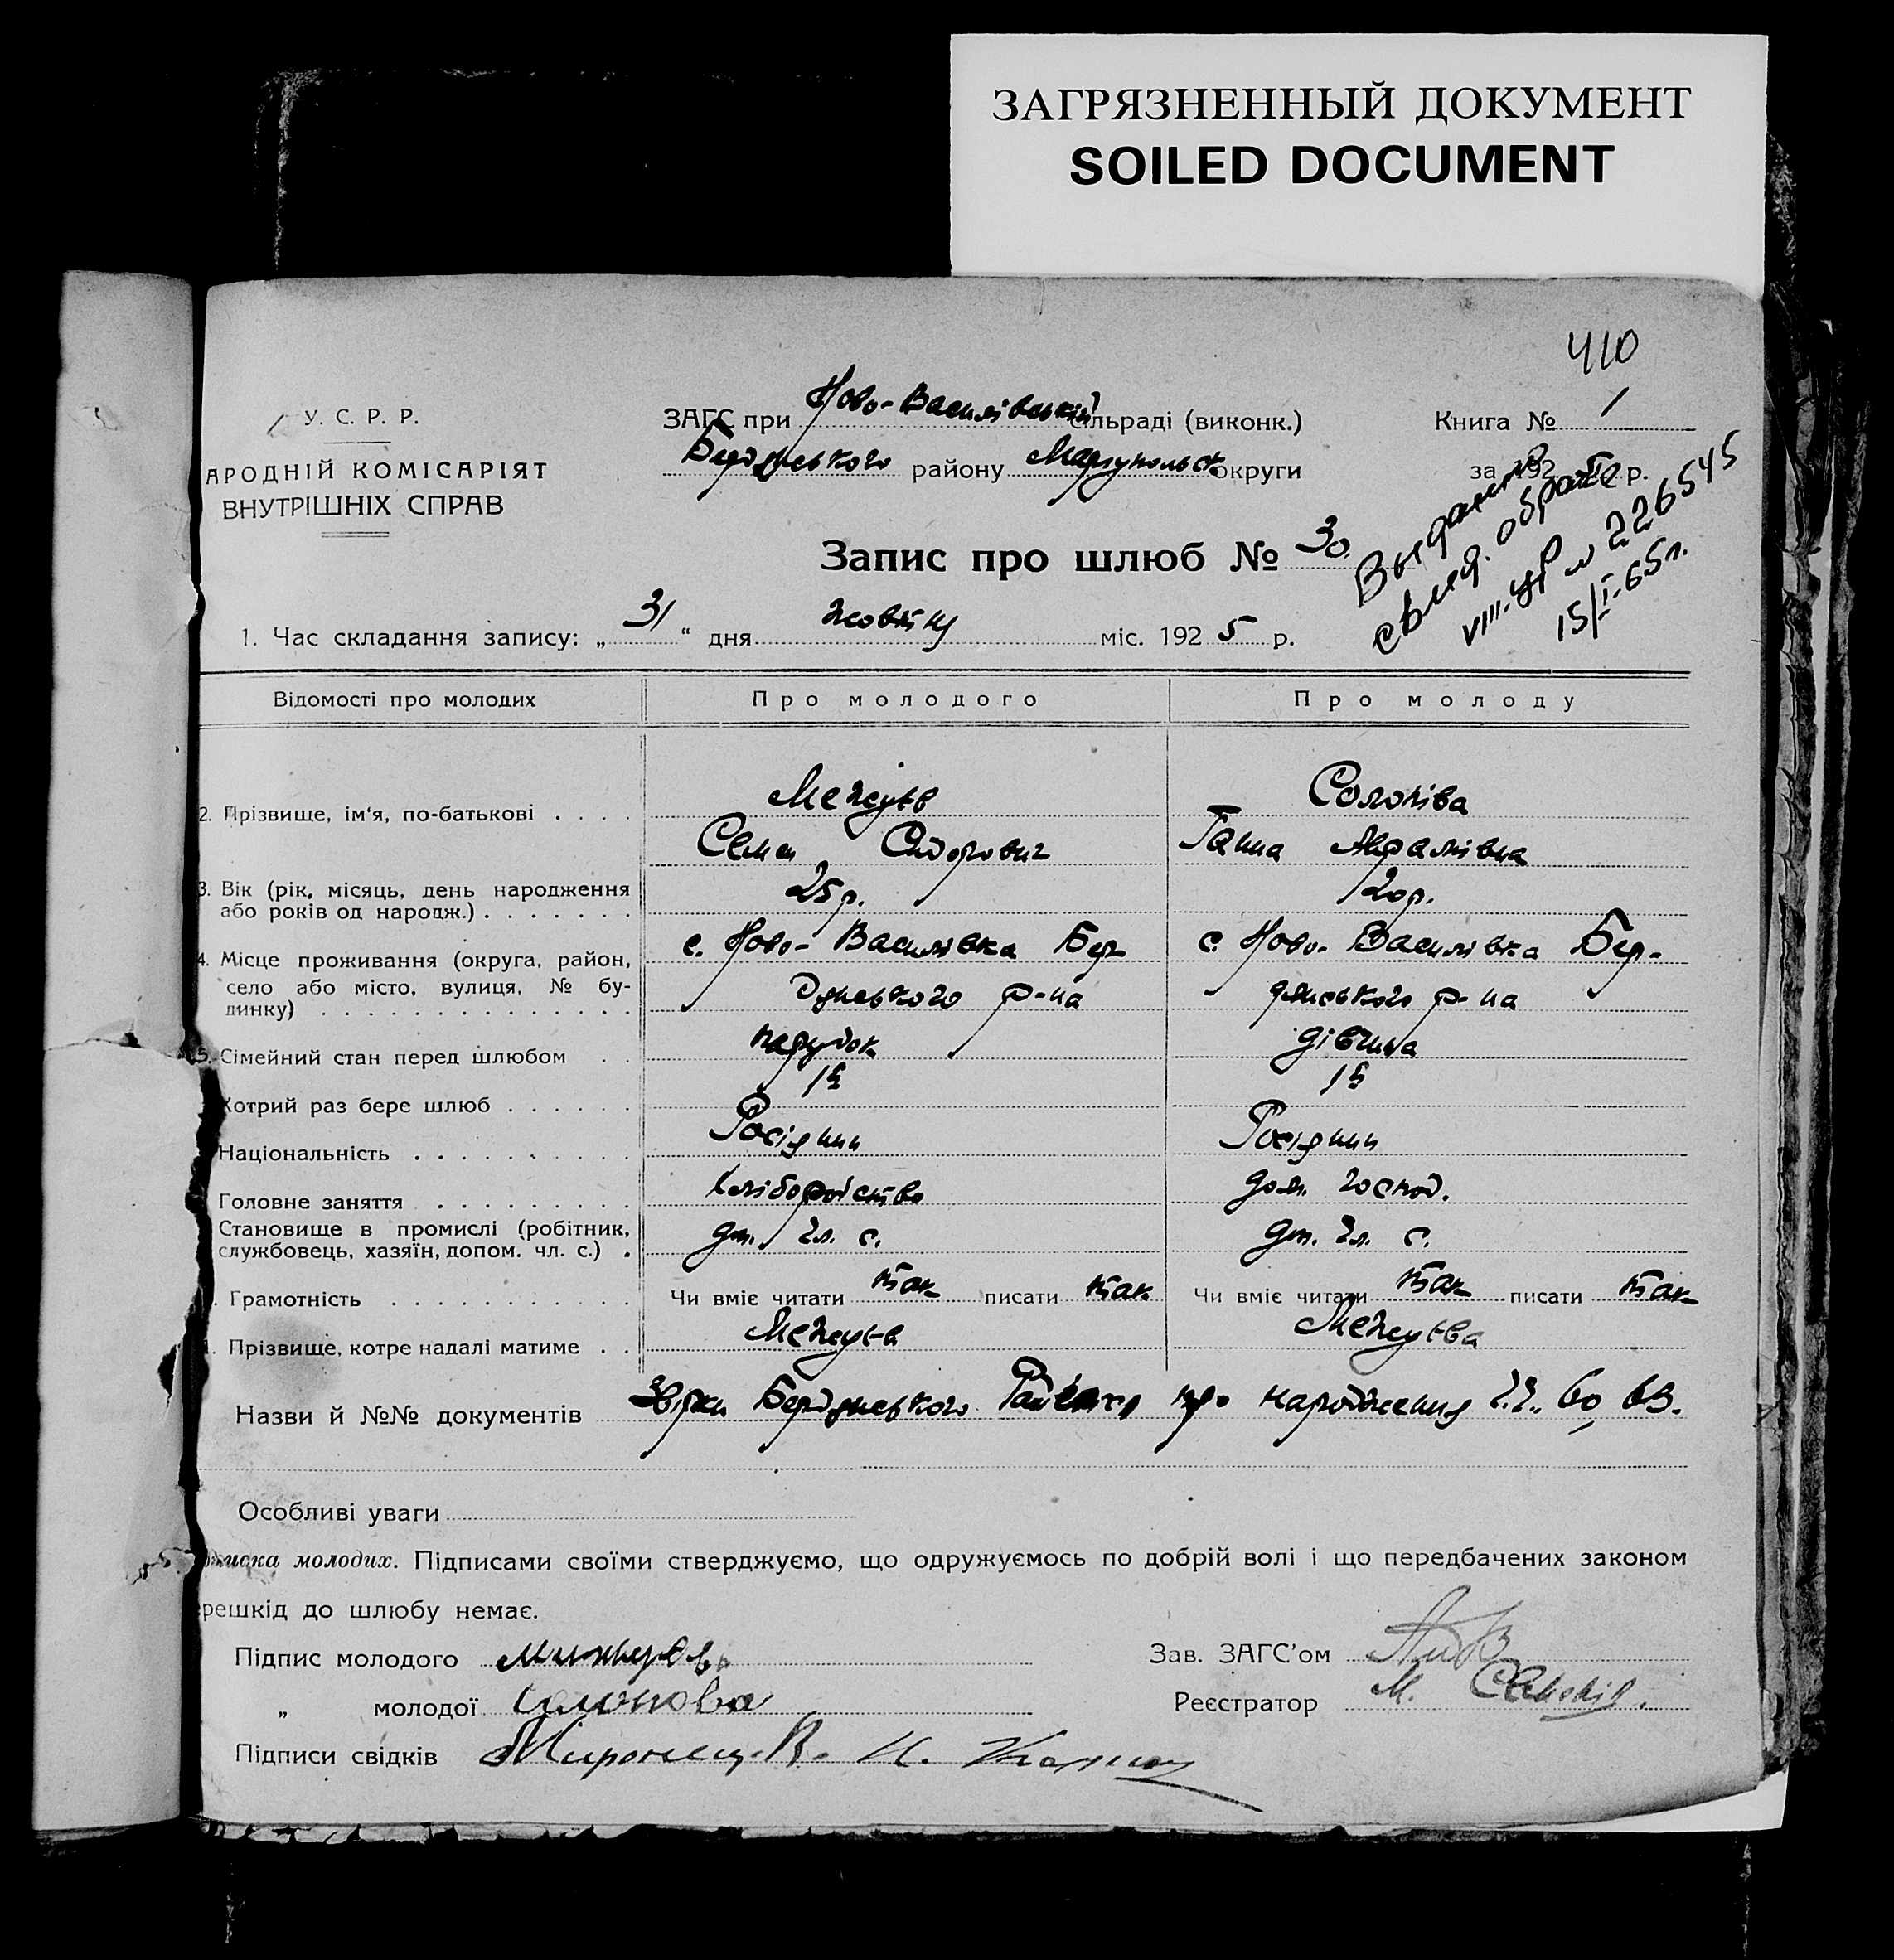 ЗАГРЯЗНЕННЫЙ ДОКУМЕНТ
SOILED DOCUMENT
410
У. С. Р. Р.
АРОДНІЙ КОМІСАРІЯТ
ВНУТРІШНІХ СПРАВ
ЗАГС при Ново-Василівській сільраді (виконк.)
Бердянського району Маріупольск округи
Книга № 1
за 192 р.
Запис про шлюб № 30.
Выдано
свид. обрач
VIII-УР № 226545
15/I-65г.
1. Час складання запису: „ 31 “ дня жовтня міс. 1925 р.
Відомості про молодих Про молодого Про молоду
2. Прізвище, ім'я, по-батькові . . . . Межуєв Солоніва
Семен Сидорович Ганна Абрамівна
3. Вік (рік, місяць, день народження 25 р. 20 р.
або років од народж.) . . . . . . .
4. Місце проживання (округа, район, с. Ново-Василівка Бер- с. Ново-Василівка Бер-
село або місто, вулиця, № бу- дянського р-на дянського р-на
динку) . . . . . . . . . . . . . .
5. Сімейний стан перед шлюбом . . парубок дівчина
Котрий раз бере шлюб . . . . . . 1й 1й
Національність . . . . . . . . . . Росіянин Росіянин
Головне заняття . . . . . . . . . Хліборобство дом. господ.
Становище в промислі (робітник, дп. чл. с. дп. чл. с.
службовець, хазяїн, допом. чл. с.) .
Грамотність . . . . . . . . . . . Чи вміє читати так писати так Чи вміє читати так писати так
Прізвище, котре надалі матиме . . Межуєв Межуєва
Назви й №№ документів Бердянського про народження ч.ч. 60, 63.
Особливі уваги
писка молодих. Підписами своїми стверджуємо, що одружуємось по добрій волі і що передбачених законом
решкід до шлюбу немає.
Підпис молодого Зав. ЗАГС'ом
„ молодої Солонова Реєстратор М.
Підписи свідків